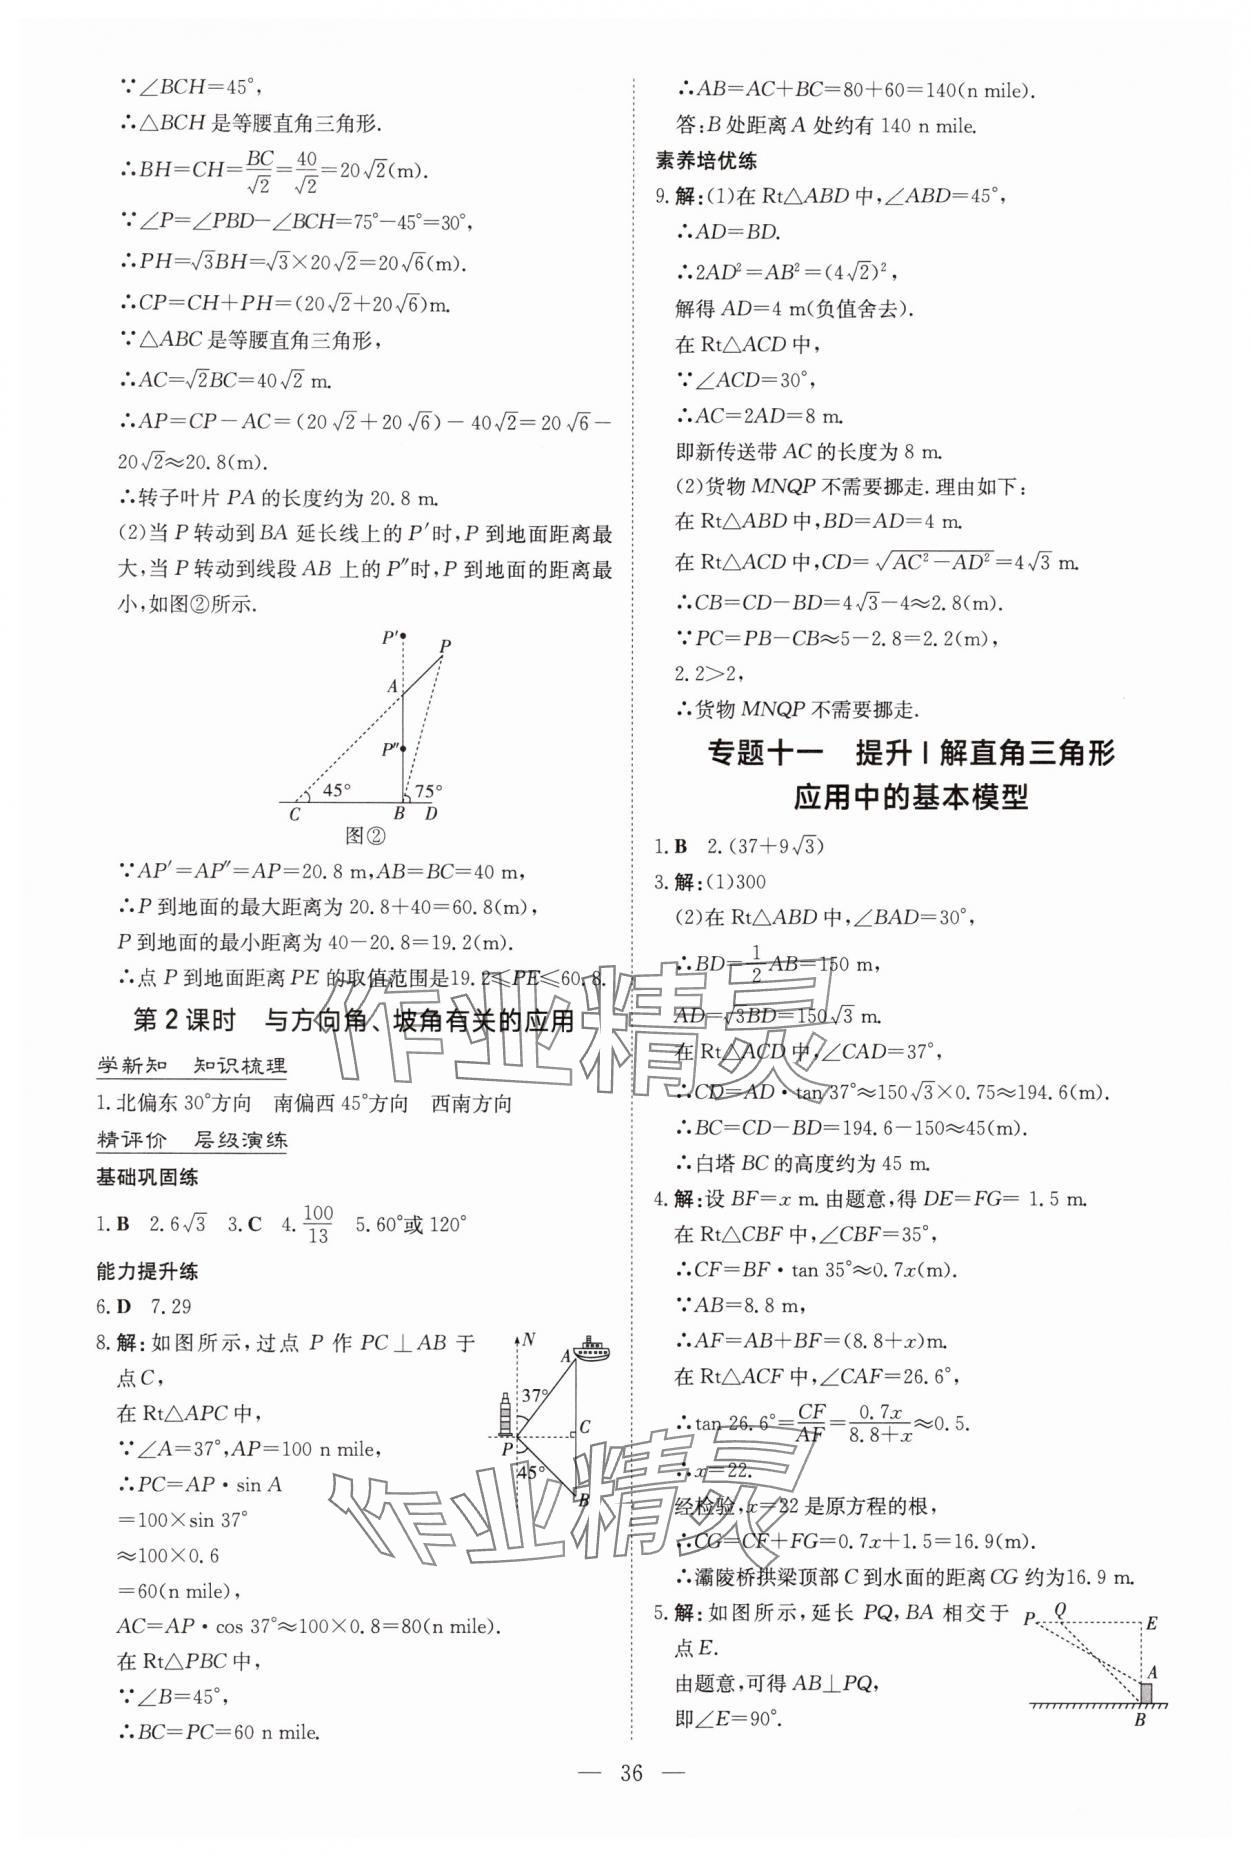 ∵∠BCH=45°,
∴△BCH 是等腰直角三角形.
∴BH=CH=BC/√2=40/√2=20√2(m).
∵∠P=∠PBD-∠BCH=75°-45°=30°,
∴PH=√3BH=√3×20√2=20√6(m).
∴CP=CH+PH=(20√2+20√6)m.
∵△ABC 是等腰直角三角形,
∴AC=√2BC=40√2 m.
∴AP=CP-AC=(20√2+20√6)-40√2=20√6-
20√2≈20.8(m).
∴转子叶片 PA 的长度约为 20.8 m.
(2)当 P 转动到 BA 延长线上的 P′时,P 到地面距离最
大,当 P 转动到线段 AB 上的 P″时,P 到地面的距离最
小,如图②所示.
P′
P
A
P″
45°
75°
C
B D
图②
∵AP′=AP″=AP=20.8 m,AB=BC=40 m,
∴P 到地面的最大距离为 20.8+40=60.8(m),
P 到地面的最小距离为 40-20.8=19.2(m).
∴点 P 到地面距离 PE 的取值范围是19.2≤PE≤60.8.
第 2 课时 与方向角、坡角有关的应用
学新知 知识梳理
1.北偏东 30°方向 南偏西 45°方向 西南方向
精评价 层级演练
基础巩固练
1.B 2.6√3 3.C 4.100/13 5.60°或 120°
能力提升练
6.D 7.29
8.解:如图所示,过点 P 作 PC⊥AB 于
点C,
在 Rt△APC 中,
∵∠A=37°,AP=100 n mile,
∴PC=AP·sin A
=100×sin 37°
≈100×0.6
=60(n mile),
AC=AP·cos 37°≈100×0.8=80(n mile).
在 Rt△PBC 中,
∵∠B=45°,
∴BC=PC=60 n mile.
N
A
37°
C
P
45°
B
∴AB=AC+BC=80+60=140(n mile).
答:B 处距离 A 处约有 140 n mile.
素养培优练
9.解:(1)在 Rt△ABD 中,∠ABD=45°,
∴AD=BD.
∴2AD²=AB²=(4√2)²,
解得 AD=4 m(负值舍去).
在 Rt△ACD 中,
∵∠ACD=30°,
∴AC=2AD=8 m.
即新传送带 AC 的长度为 8 m.
(2)货物 MNQP 不需要挪走.理由如下:
在 Rt△ABD 中,BD=AD=4 m.
在 Rt△ACD 中,CD=√(AC²-AD²)=4√3 m.
∴CB=CD-BD=4√3-4≈2.8(m).
∵PC=PB-CB≈5-2.8=2.2(m),
2.2>2,
∴货物 MNQP 不需要挪走.
专题十一 提升|解直角三角形
应用中的基本模型
1.B 2.(37+9√3)
3.解:(1)300
(2)在 Rt△ABD 中,∠BAD=30°,
∴BD=1/2AB=150 m,
AD=√3BD=150√3 m.
在 Rt△ACD 中,∠CAD=37°,
∴CD=AD·tan 37°≈150√3×0.75≈194.6(m).
∴BC=CD-BD=194.6-150≈45(m).
∴白塔 BC 的高度约为 45 m.
4.解:设 BF=x m.由题意,得 DE=FG= 1.5 m.
在 Rt△CBF 中,∠CBF=35°,
∴CF=BF·tan 35°≈0.7x(m).
∵AB=8.8 m,
∴AF=AB+BF=(8.8+x)m.
在 Rt△ACF 中,∠CAF=26.6°,
∴tan 26.6°=CF/AF=0.7x/(8.8+x)≈0.5.
∴x=22.
经检验,x=22 是原方程的根,
∴CG=CF+FG=0.7x+1.5=16.9(m).
∴灞陵桥拱梁顶部 C 到水面的距离 CG 约为16.9 m.
5.解:如图所示,延长 PQ,BA 相交于
点 E.
由题意,可得 AB⊥PQ,
即∠E=90°.
P
Q
E
A
B
— 36 —
作业精灵
作业精灵